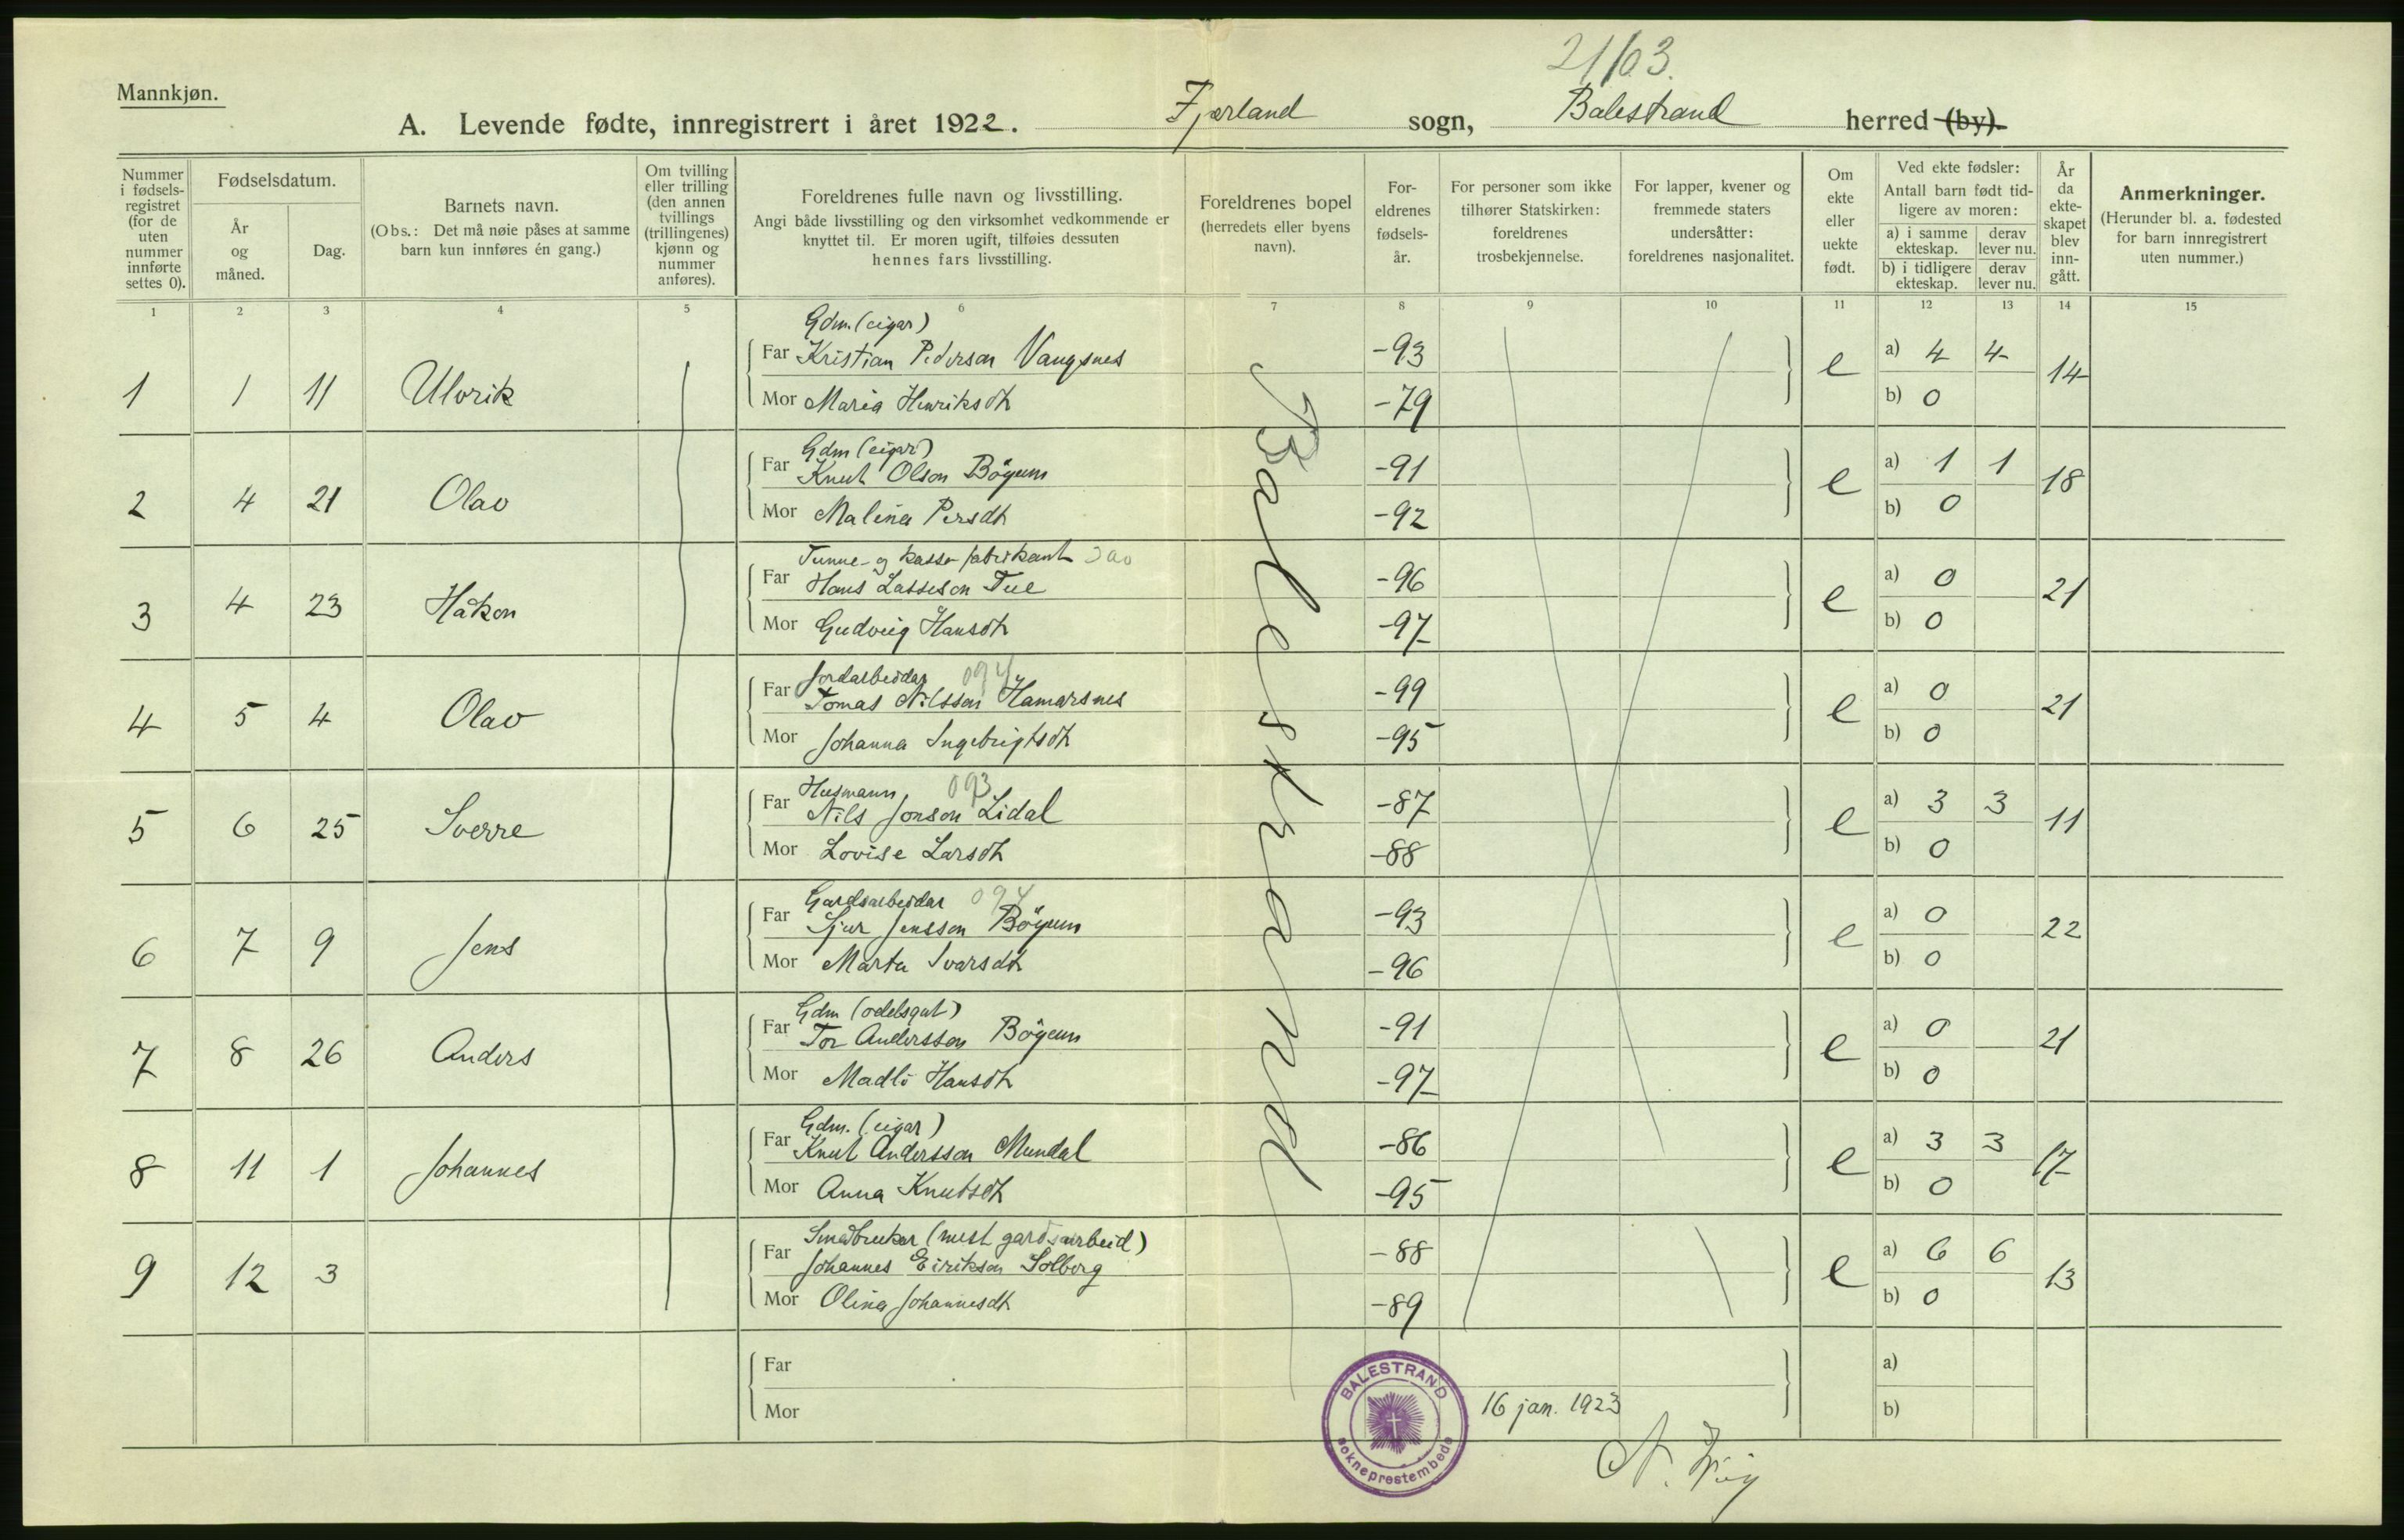 21/03.
Mannkjøn.
A. Levende fødte, innregistrert i året 1922. Fjærland sogn, Balestrand herred (by).
Nummer i fødsels-registret (for de uten nummer innførte settes 0).
Fødselsdatum.
År og måned.
Dag.
Barnets navn.
(Obs.: Det må nøie påses at samme barn kun innføres én gang.)
Om tvilling eller trilling (den annen tvillings (trillingenes) kjønn og nummer anføres).
Foreldrenes fulle navn og livsstilling.
Angi både livsstilling og den virksomhet vedkommende er knyttet til. Er moren ugift, tilføies dessuten hennes fars livsstilling.
Foreldrenes bopel (herredets eller byens navn).
For-eldrenes fødsels-år.
For personer som ikke tilhører Statskirken: foreldrenes trosbekjennelse.
For lapper, kvener og fremmede staters undersåtter: foreldrenes nasjonalitet.
Om ekte eller uekte født.
Ved ekte fødsler:
Antall barn født tid-ligere av moren:
a) i samme ekteskap. derav lever nu.
b) i tidligere ekteskap. derav lever nu.
År da ekte-skapet blev inn-gått.
Anmerkninger.
(Herunder bl. a. fødested for barn innregistrert uten nummer.)
1 2 3 4 5 6 7 8 9 10 11 12 13 14 15
Balestrand
Gdm. (eigar)
Far Kristian Pederson Vangsnes -93 a) 4 4
1 1 11 Ulvrik e 14
Mor Maria Henriksdt -79 b) 0
Gdm (eigar)
Far Knut Olson Bøyum -91 a) 1 1
2 4 21 Olav e 18
Mor Malina Persdt -92 b) 0
Tunne- og kassefabrikant
Far Hans Lasseson Tue -96 a) 0
3 4 23 Håkon e 21
Mor Gudveig Hansdt -97 b) 0
Jordarbeidar 094
Far Tomas Nilsson Hamarsnes -99 a) 0
4 5 4 Olav e 21
Mor Johanna Ingebrigtsdt -95 b) 0
Husmann 093
Far Nils Jonson Lidal -87 a) 3 3
5 6 25 Sverre e 11
Mor Lovise Larsdt -88 b) 0
Gardsarbeidar 094
Far Sjur Jensson Bøyum -93 a) 0
6 7 9 Jens e 22
Mor Marta Ivarsdt -96 b) 0
Gdm (odelsgut)
Far Tor Andersson Bøyum -91 a) 0
7 8 26 Anders e 21
Mor Madli Hansdt -97 b) 0
Gdm. (eigar)
Far Knut Andersson Mundal -86 a) 3 3
8 11 1 Johannes e 17
Mor Anna Knutsdt -95 b) 0
Småbrukar (mest gardsarbeid)
Far Johannes Eirikson Solberg -88 a) 6 6
9 12 3 e 13
Mor Olina Johannesdt -89 b) 0
Far a)
Mor b)
BALESTRAND
sokneprestembede
16 jan. 1923